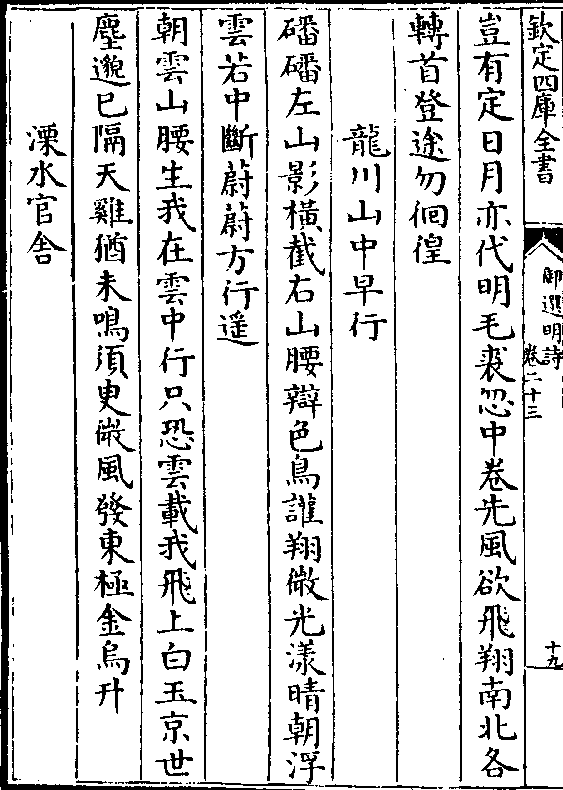 欽定四庫全書
御選明詩
卷二十三
十九
豈有定日月亦代明毛裘忽中卷先風欲飛翔南北各
轉首登途勿徊徨
龍川山中早行
磻磻左山影橫截右山腰辯色鳥讙翔微光漾晴朝浮
雲若中斷蔚蔚方行遥
朝雲山腰生我在雲中行只恐雲載我飛上白玉京世
塵邈已隔天雞猶未鳴須臾微風發東極金烏升
溧水官舍